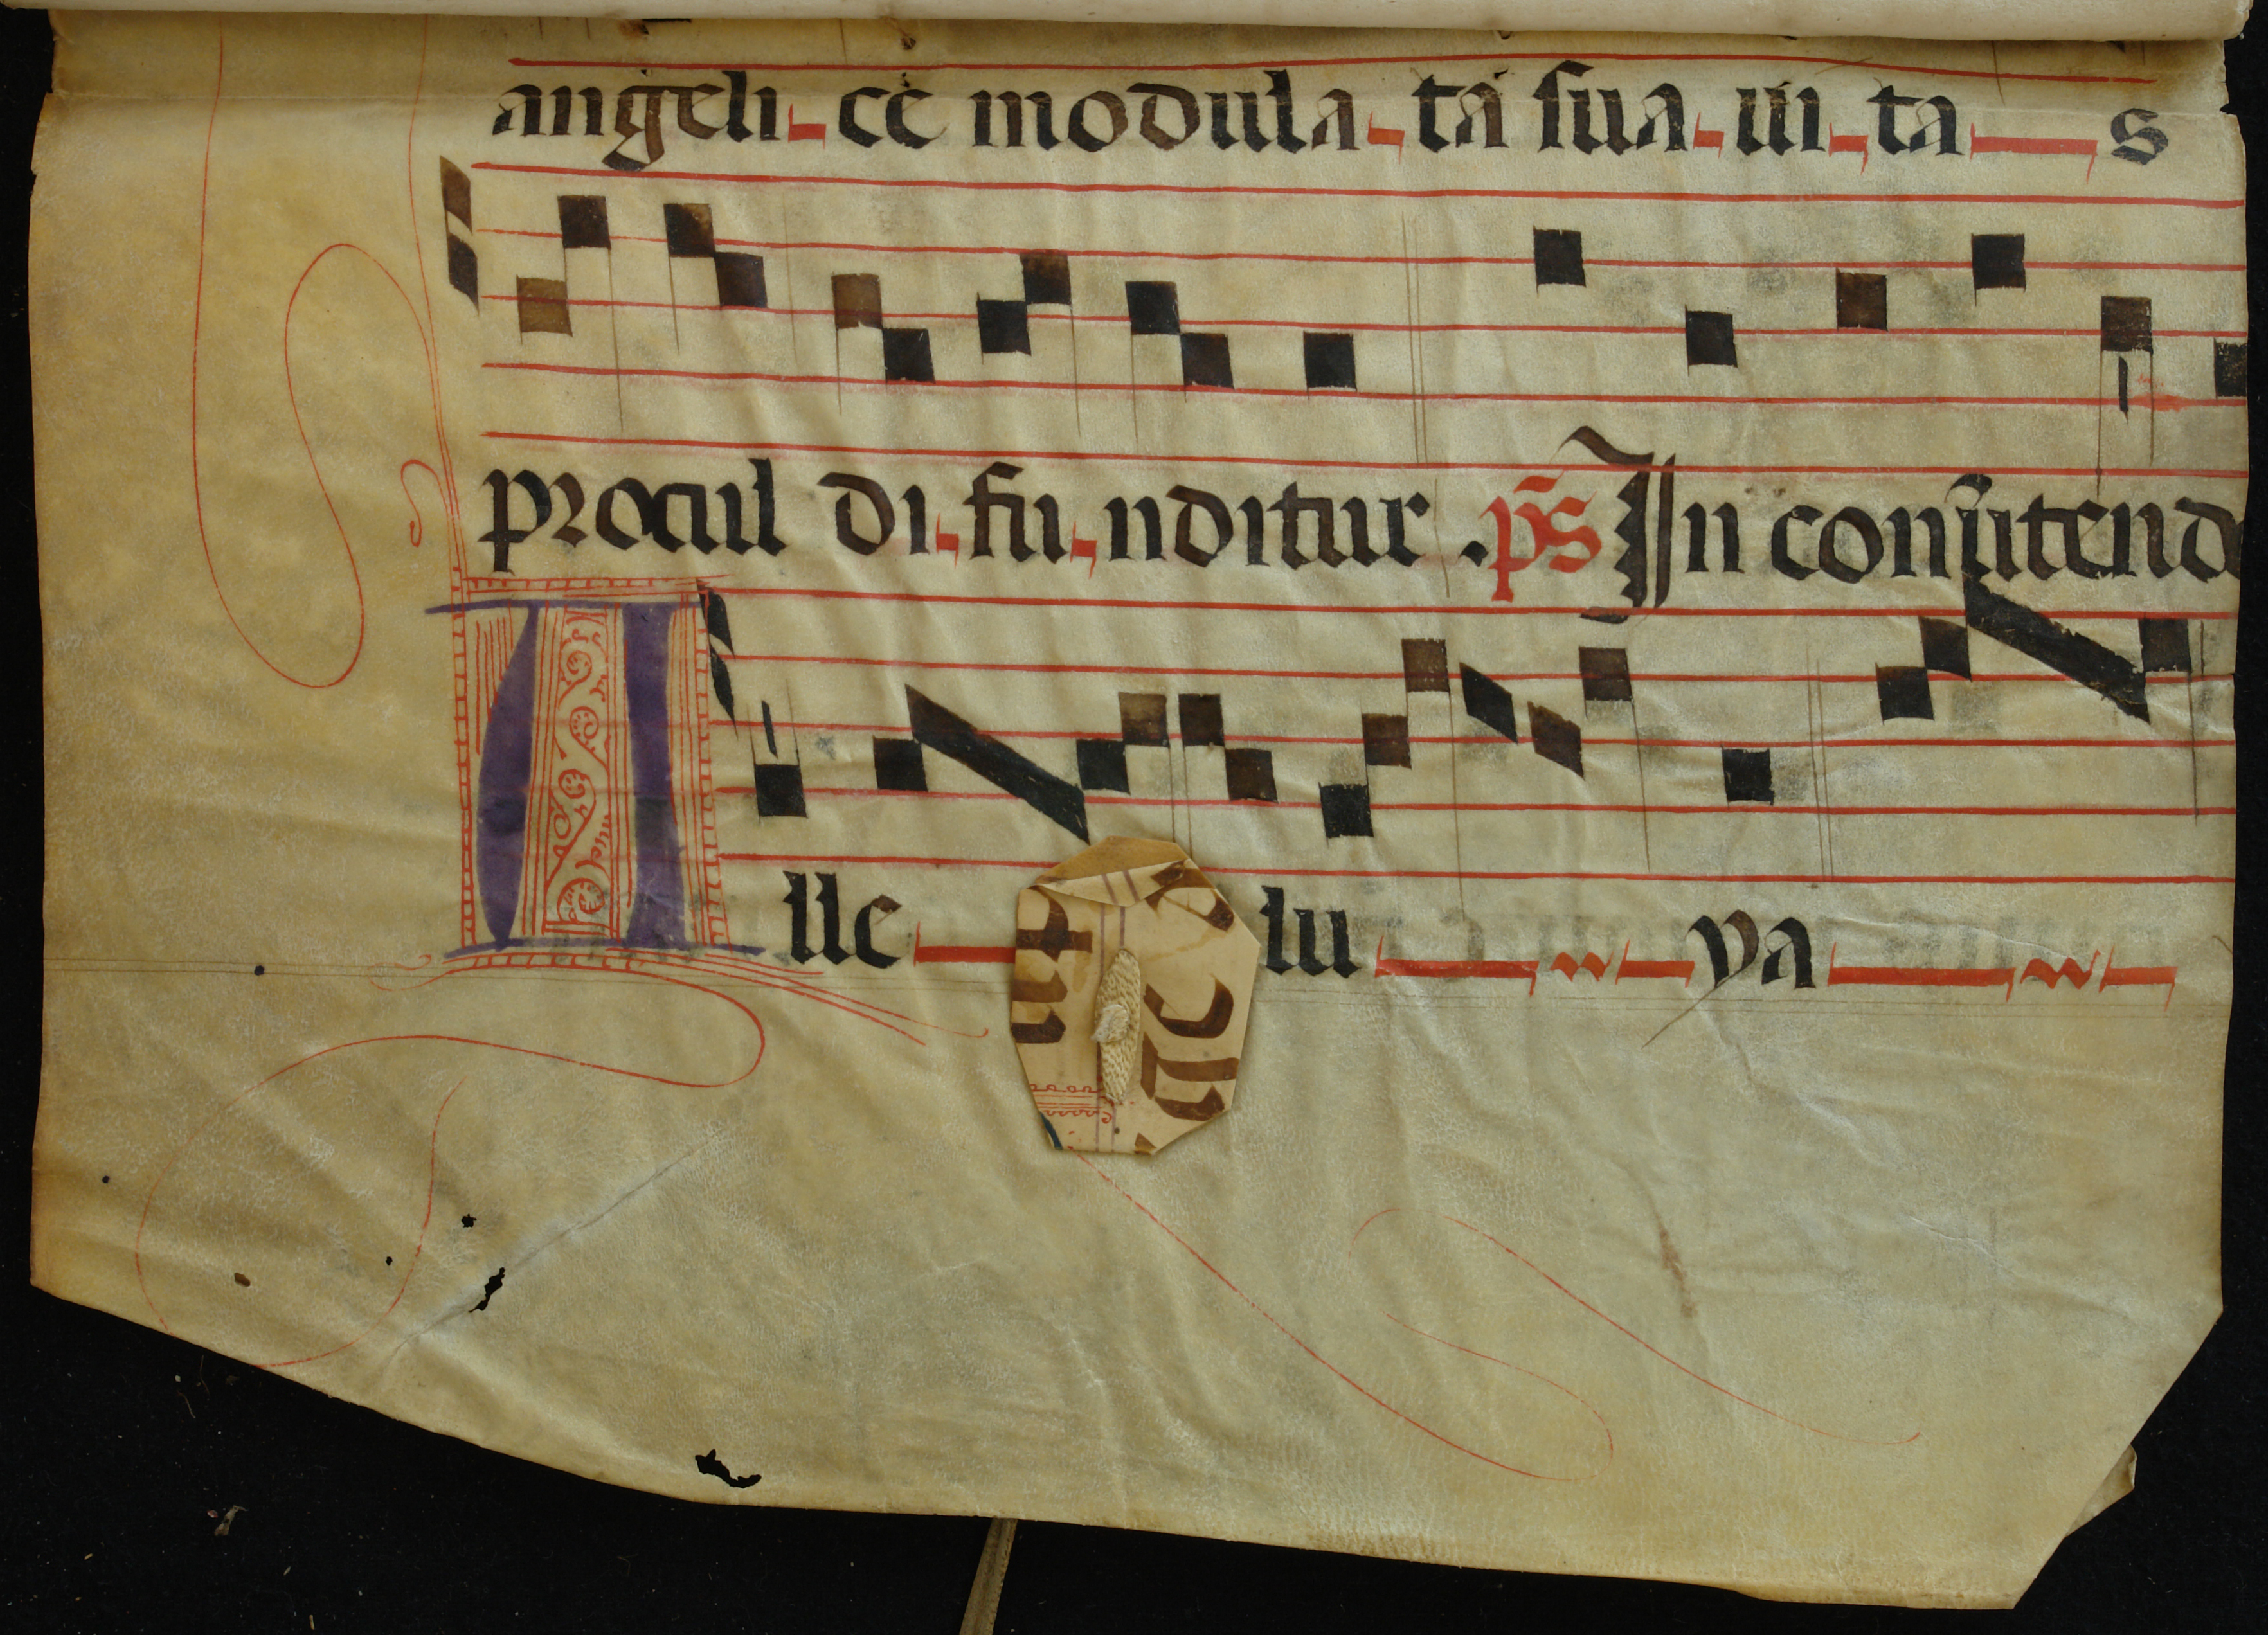 angeli-ce modula-ta sua-ui-ta-s
procul di-fu-nditur . ps̄ In conũtend
Alle-lu-ya